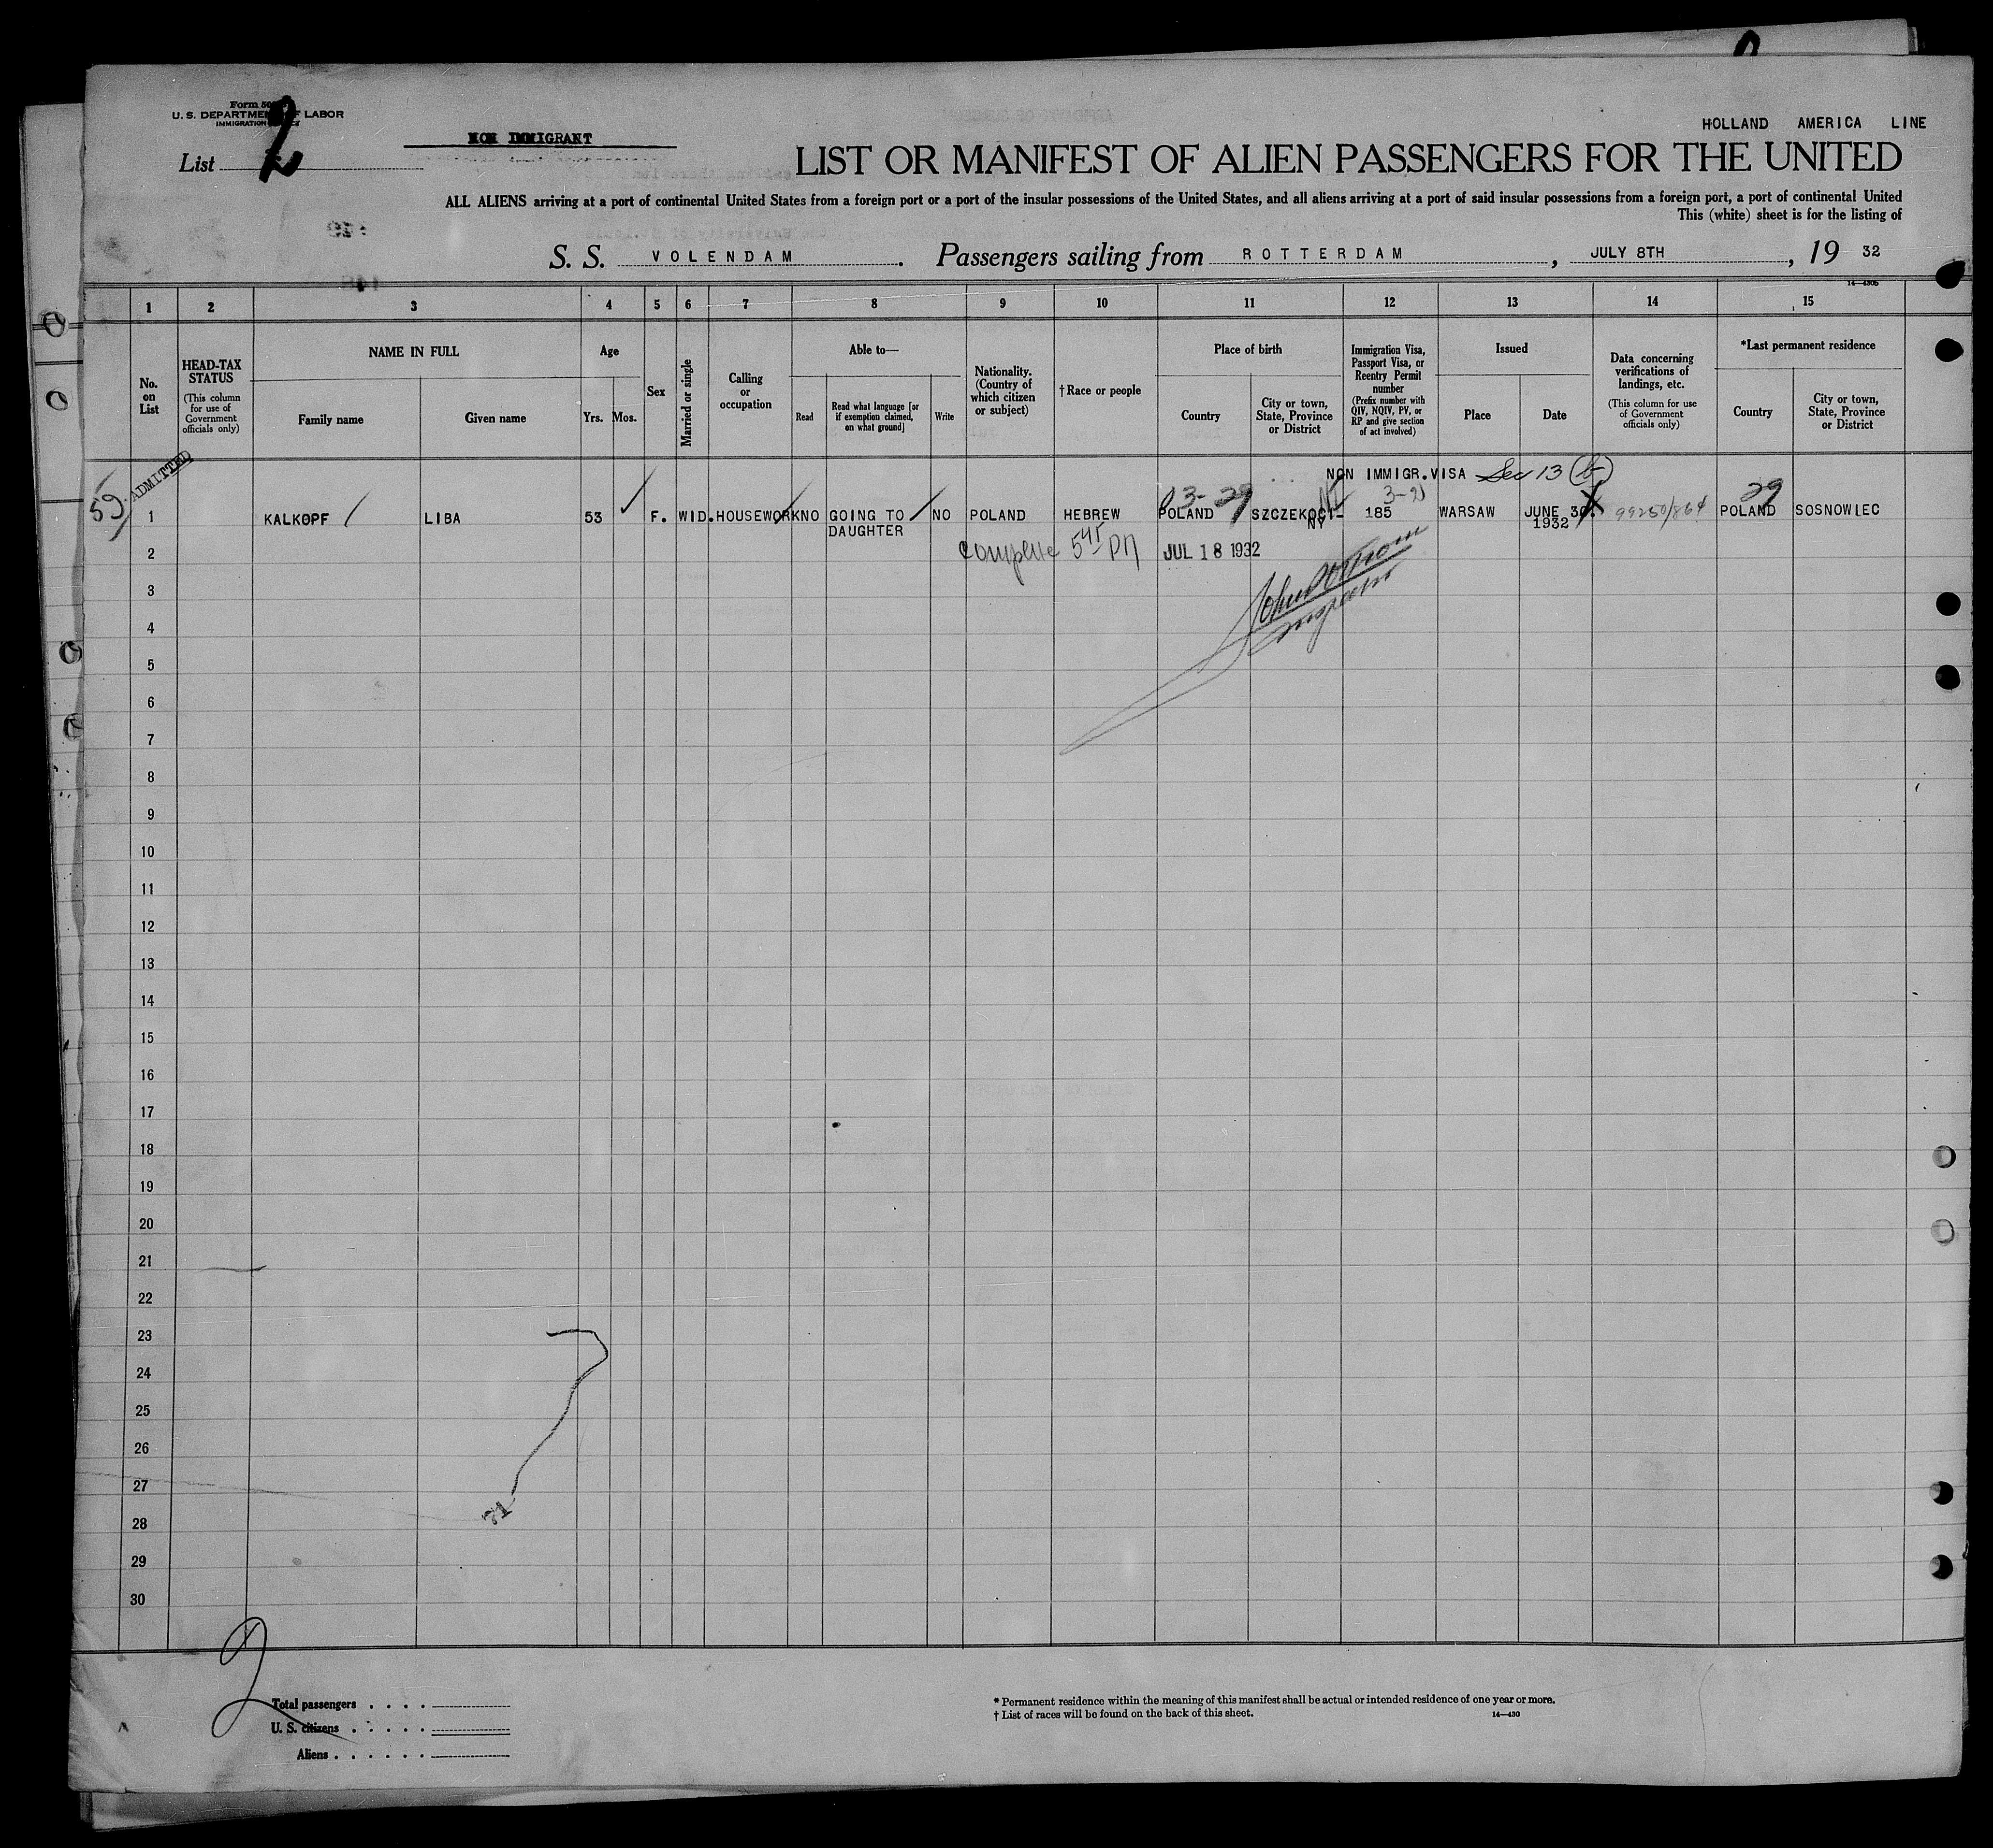 Form 50
U. S. DEPARTMENT OF LABOR
IMMIGRATION
List 2
NON IMMIGRANT
HOLLAND AMERICA LINE
LIST OR MANIFEST OF ALIEN PASSENGERS FOR THE UNITED
ALL ALIENS arriving at a port of continental United States from a foreign port or a port of the insular possessions of the United States, and all aliens arriving at a port of said insular possessions from a foreign port, a port of continental United
This (white) sheet is for the listing of
S. S. VOLENDAM . Passengers sailing from ROTTERDAM , JULY 8TH , 19 32
14—430b
1 2 3 4 5 6 7 8 9 10 11 12 13 14 15
No. on List
HEAD-TAX STATUS (This column for use of Government officials only)
NAME IN FULL
Family name Given name
Age
Yrs. Mos.
Sex
Married or single
Calling or occupation
Able to—
Read Read what language [or if exemption claimed, on what ground] Write
Nationality. (Country of which citizen or subject)
† Race or people
Place of birth
Country City or town, State, Province or District
Immigration Visa, Passport Visa, or Reentry Permit number (Prefix number with QIV, NQIV, PV, or RP and give section of act involved)
Issued
Place Date
Data concerning verifications of landings, etc. (This column for use of Government officials only)
*Last permanent residence
Country City or town, State, Province or District
ADMITTED
NON IMMIGR.VISA Sec 13 (b)
59 3-29 NI 29
1 KALKOPF LIBA 53 F. WID. HOUSEWORK NO GOING TO NO POLAND HEBREW POLAND SZCZEKOCI- 185 WARSAW JUNE 30. 99250/864 POLAND SOSNOWIEC
DAUGHTER NY 1932
2 Complete 5 45 PM JUL 18 1932
3
4 Inspector
5
6
7
8
9
10
11
12
13
14
15
16
17
18
19
20
21
22
23
24
25
26
27
28
29
30
2
Total passengers . . . .
U. S. citizens . . . . .
Aliens . . . . . .
* Permanent residence within the meaning of this manifest shall be actual or intended residence of one year or more.
† List of races will be found on the back of this sheet.
14—430